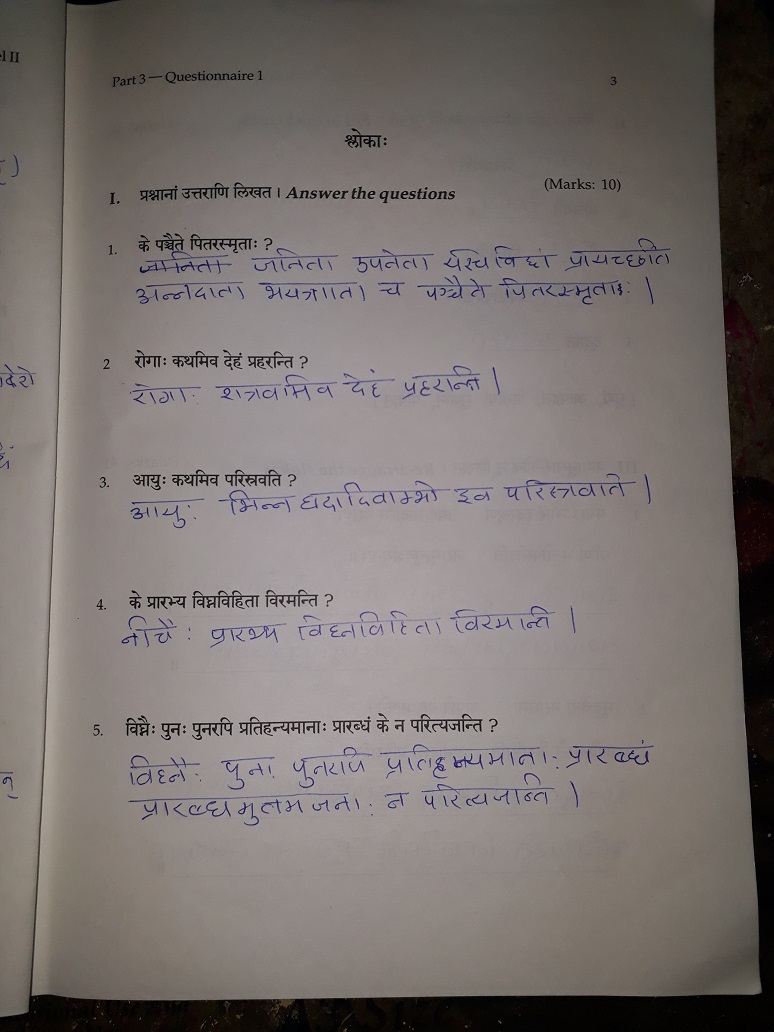 Part 3 — Questionnaire 1
3
श्लोकाः
I. प्रश्नानां उत्तराणि लिखत । Answer the questions
(Marks: 10)
1. के पञ्चैते पितरस्मृताः ?
जनिता उपनेता यस्यविद्यां प्रायच्छति
अन्नदाता भयत्राता च पञ्चैते पितरस्मृताः |
2 रोगाः कथमिव देहं प्रहरन्ति ?
रोगाः शत्रवमिव देहं प्रहरान्ति |
3. आयुः कथमिव परिस्रवति ?
आयुः भिन्न घदादिवाम्भो इव परिस्त्रवाते |
4. के प्रारभ्य विघ्नविहिता विरमन्ति ?
नीचैः प्रारभ्य विघ्नविहिता विरमान्ति |
5. विघ्नैः पुनः पुनरपि प्रतिहन्यमानाः प्रारब्धं के न परित्यजन्ति ?
विघ्नैः पुनः पुनरपि प्रतिहन्यमानाः प्रारब्धं
प्रारब्धमुतमजनाः न परित्यजान्ति |